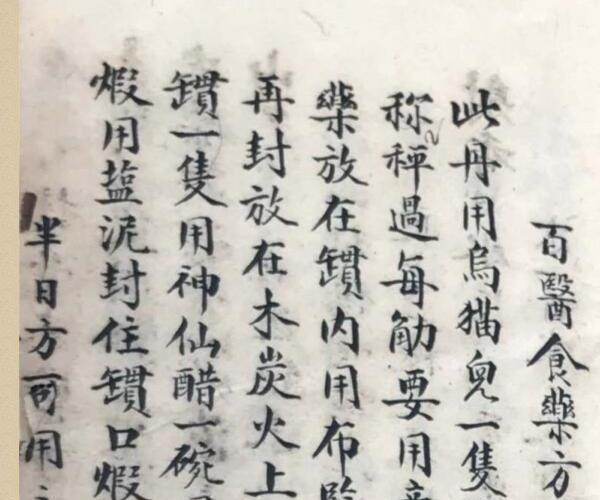 百醫食藥方
此丹用烏猫兒一隻
称秤過每觔要用
藥放在鑵內用布
再封放在木炭火上
鑵一隻用神仙醋一碗
煅用塩泥封住鑵口煅
半日方可用